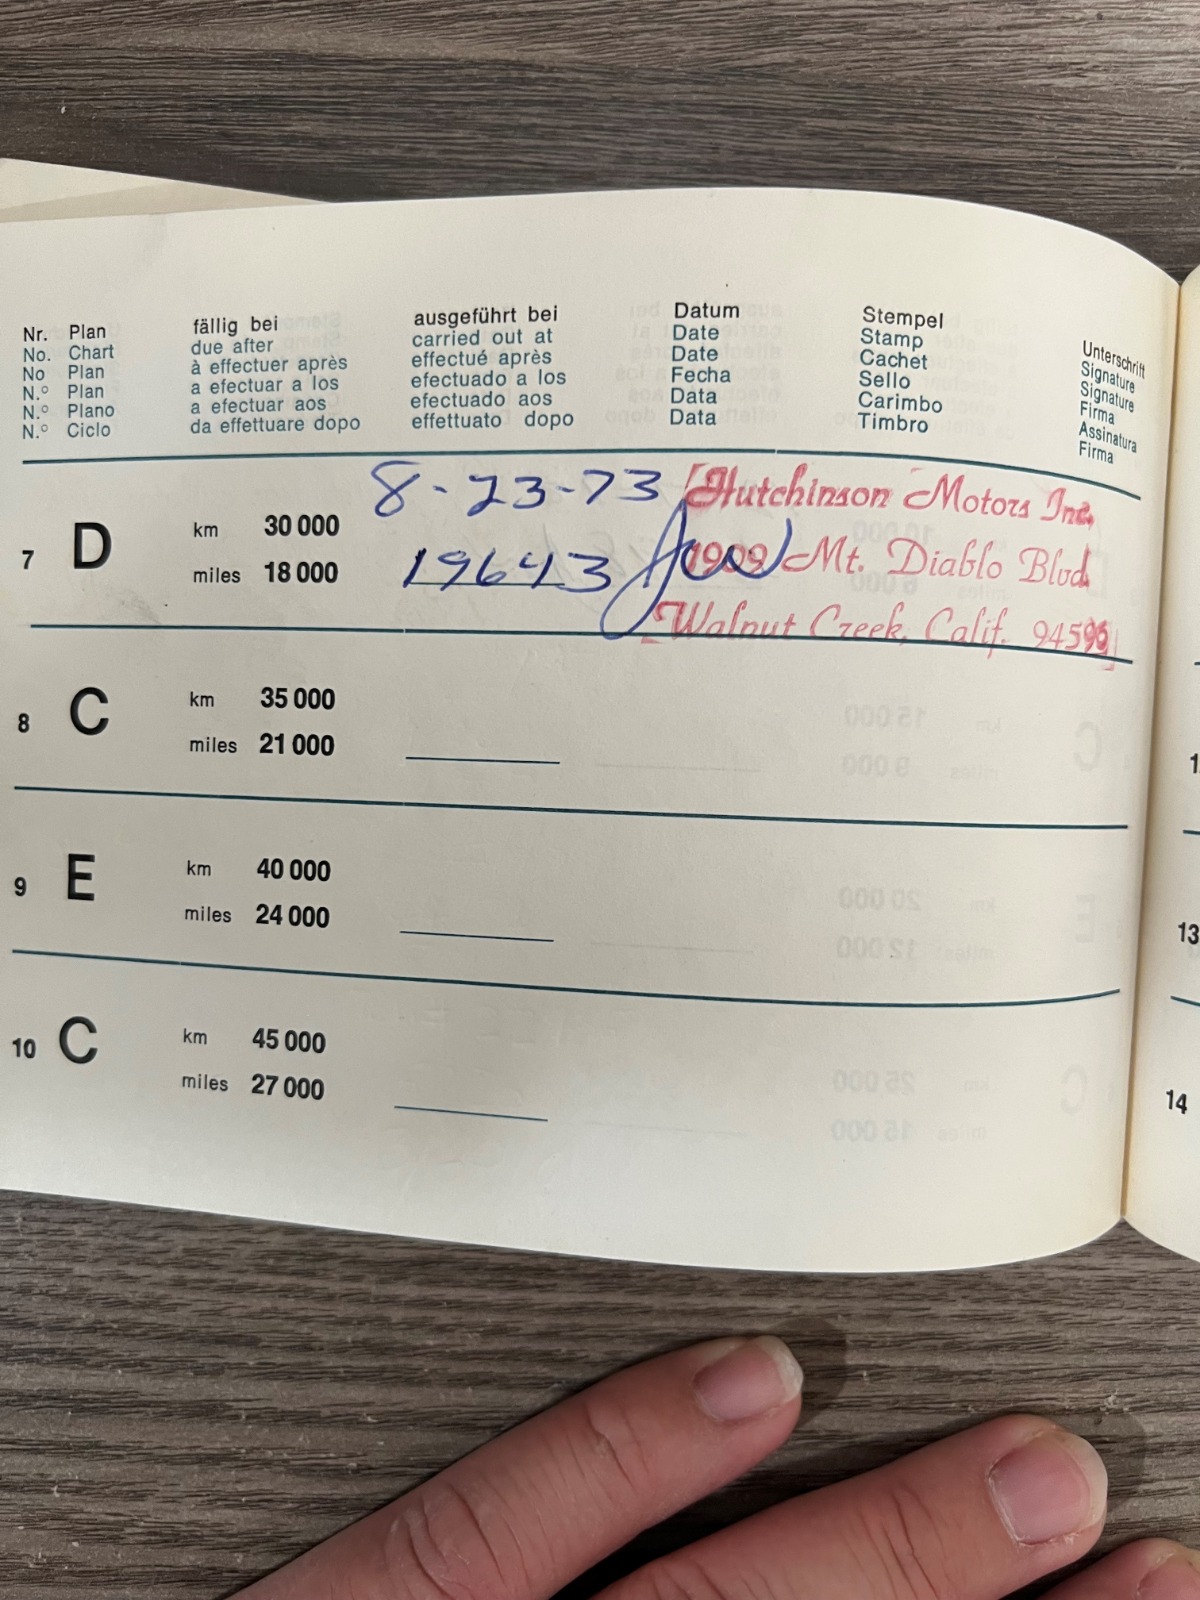 Nr. Plan fällig bei ausgeführt bei Datum Stempel Unterschrift
No. Chart due after carried out at Date Stamp Signature
No Plan à effectuer après effectué après Date Cachet Signature
N.º Plan a efectuar a los efectuado a los Fecha Sello Firma
N.º Plano a efectuar aos efectuado aos Data Carimbo Assinatura
N.º Ciclo da effettuare dopo effettuato dopo Data Timbro Firma
8-23-73 Hutchinson Motors Inc.
7 D km 30 000
miles 18 000 19643 1909 Mt. Diablo Blvd
Walnut Creek, Calif. 94596
8 C km 35 000
miles 21 000
9 E km 40 000
miles 24 000
10 C km 45 000
miles 27 000
13
14